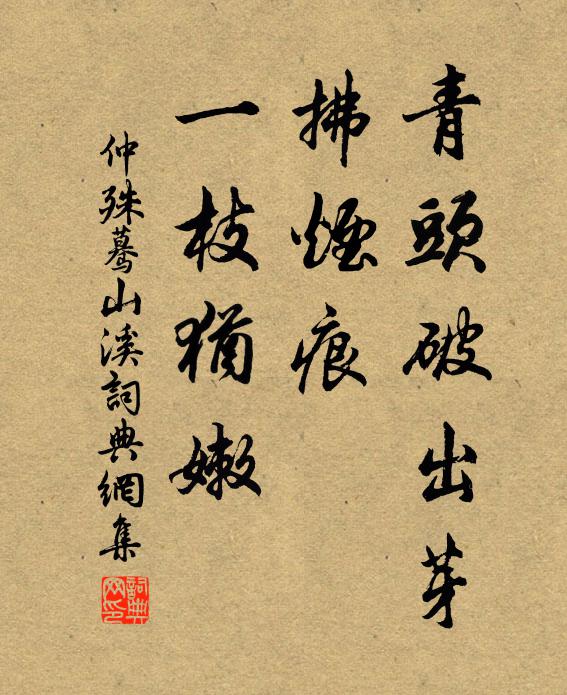 青頭破出芽
拂煙痕
一枝猶嫩
仲殊驀山溪詞典網集
詞典网印